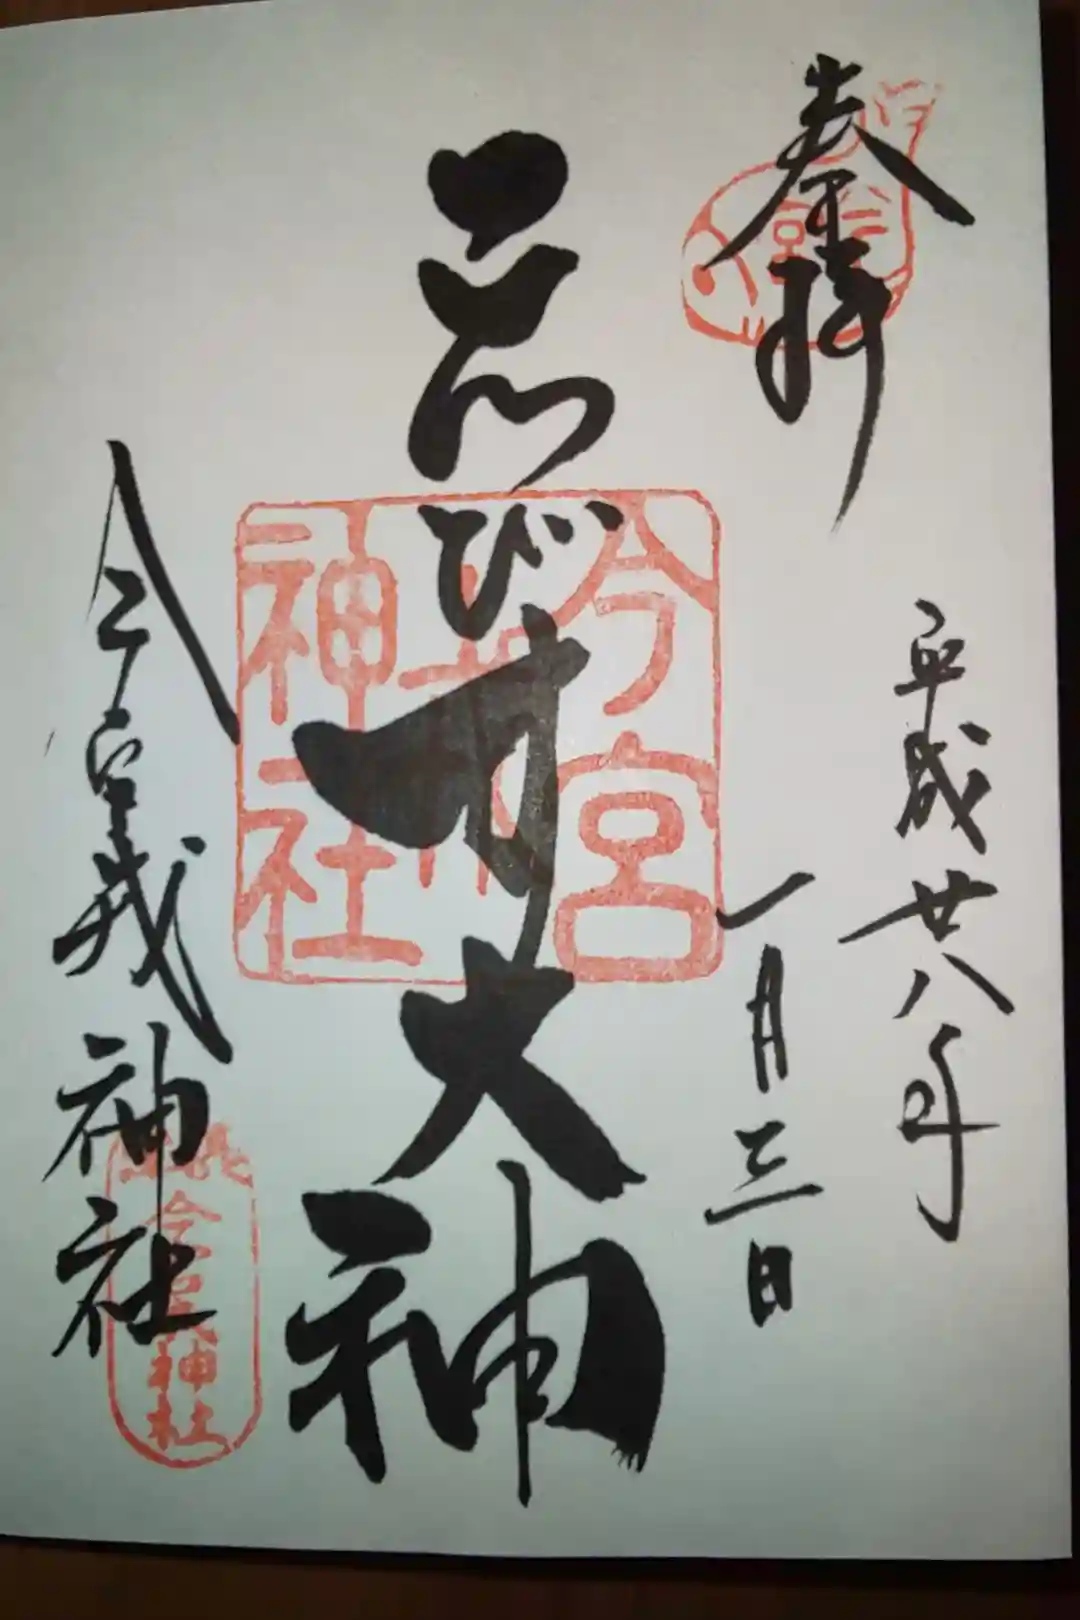 奉拝
平成廿八年
一月三日
ゑびす大神
今宮戎神社
今宮
神社
今宮戎神社